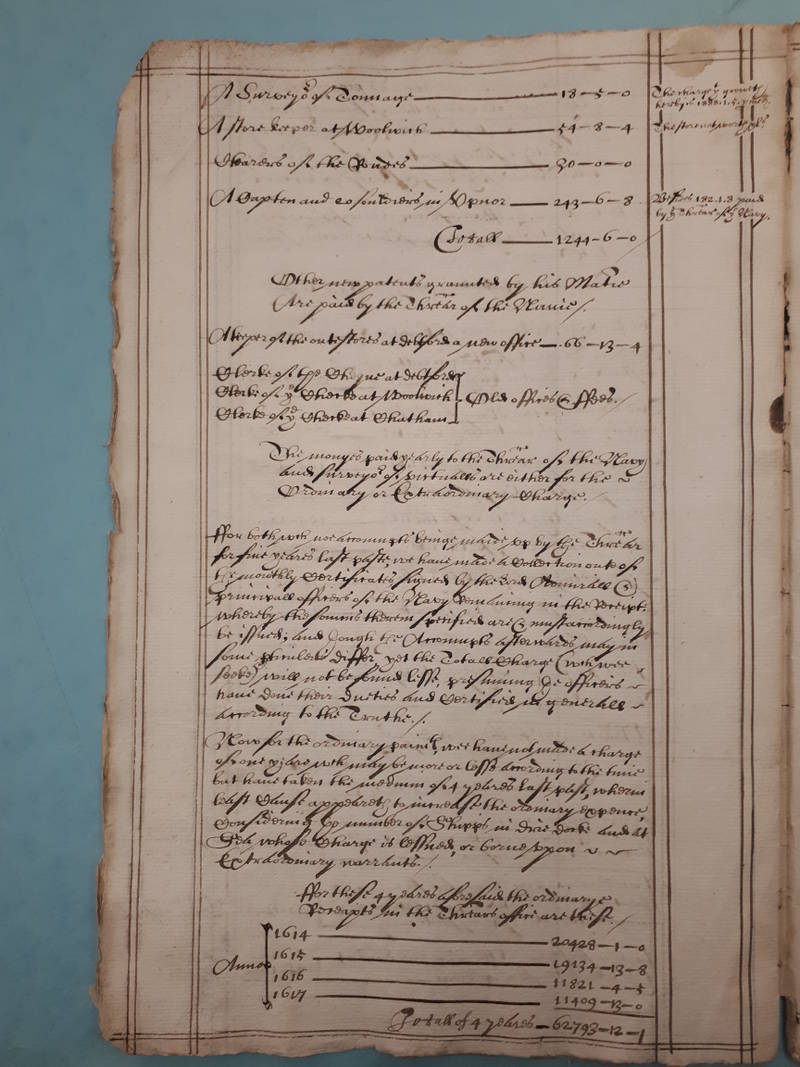 A Surveyor of Tonnage — 18-5-0
The charge growth
hereby
A storekeeper at Woolwich — 54-8-4
The store not worth
Clearers of the Roades — 30-0-0
A Capten and 20 souldiers in Upnor — 243-6-8
Besides 182.1.8 paid
by ye Threãr of ye Navy.
Totall — 1244-6-0
Other new patents graunted by his Matie
Are paid by the Threãr of the Navie /.
A keeper of the outstores at detford a new office — 66-13-4
Clerke of the Checque at detford
Clerke of ye Checke at Woolwich
Clerke of ye Checke at Chatham
Old offices & ffees. /
The monyes paid yearly to the Threãr of the Navy
and surveyor of victualls are either for the
Ordinary or Extraordinary Charge. /
ffor both wch noe accompts beinge made up by the Threãr
for five yeares last paste, we have made a Collection out of
the monthly Certificates signed by the lord Admirall &
principall officers of the Navy Remaining in the Receipt:
whereby the somms therein specified are & must accordingly
be issued; and though the Accompts afterwards may in
some pticulers differ yet the Totall Charge (wch wee
seeke) will not be found lesse, presuming the officers
have done their Dueties and Certified in generall
according to the Truthe. /.
Now for the ordinary paimts, wee have not made a charge
of one yeare wch may be more or lesse according to the time
but have taken the medium of 4 yeares last past, wherin
least Cause appeareth to increase the ordinary expence,
Considering ye number of Shipps in drie docke and at
Sea, whose Charge is lessned, or borne uppon
Extraordinary warrants. /.
ffor these 4 yeares aforesaid the ordinary
Receipts in the Threãrs office are these. /
Anno
1614 — 20428-1-0
1615 — 19134-13-8
1616 — 11821-4-5
1617 — 11409-13-0
Totall of 4 yeares — 62793-12-1